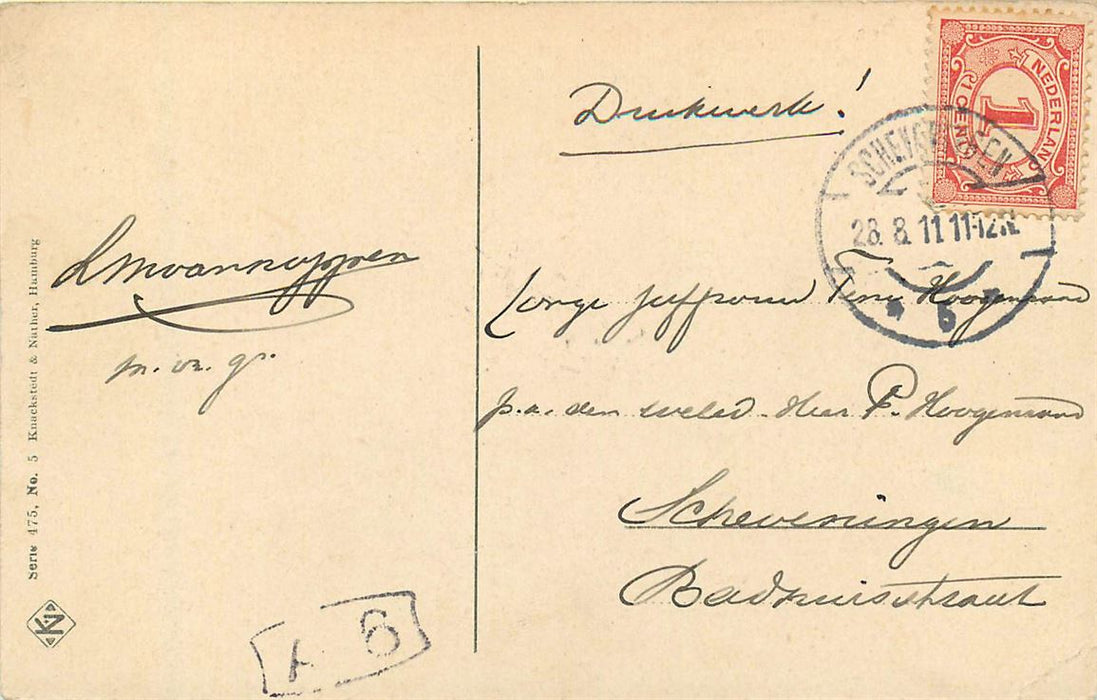 Drukwerk!
NEDERLAND
1
1 CENT
SCHEVENINGEN
28.8.11 11-12 N
5
m. vr. gr.
Jonge juffrouw Tine Hoogenraad
p.a. den weled. Heer P. Hoogenraad
Scheveningen
Badhuisstraat
Serie 475, No. 5 Knackstedt & Näther, Hamburg
KN
A 6